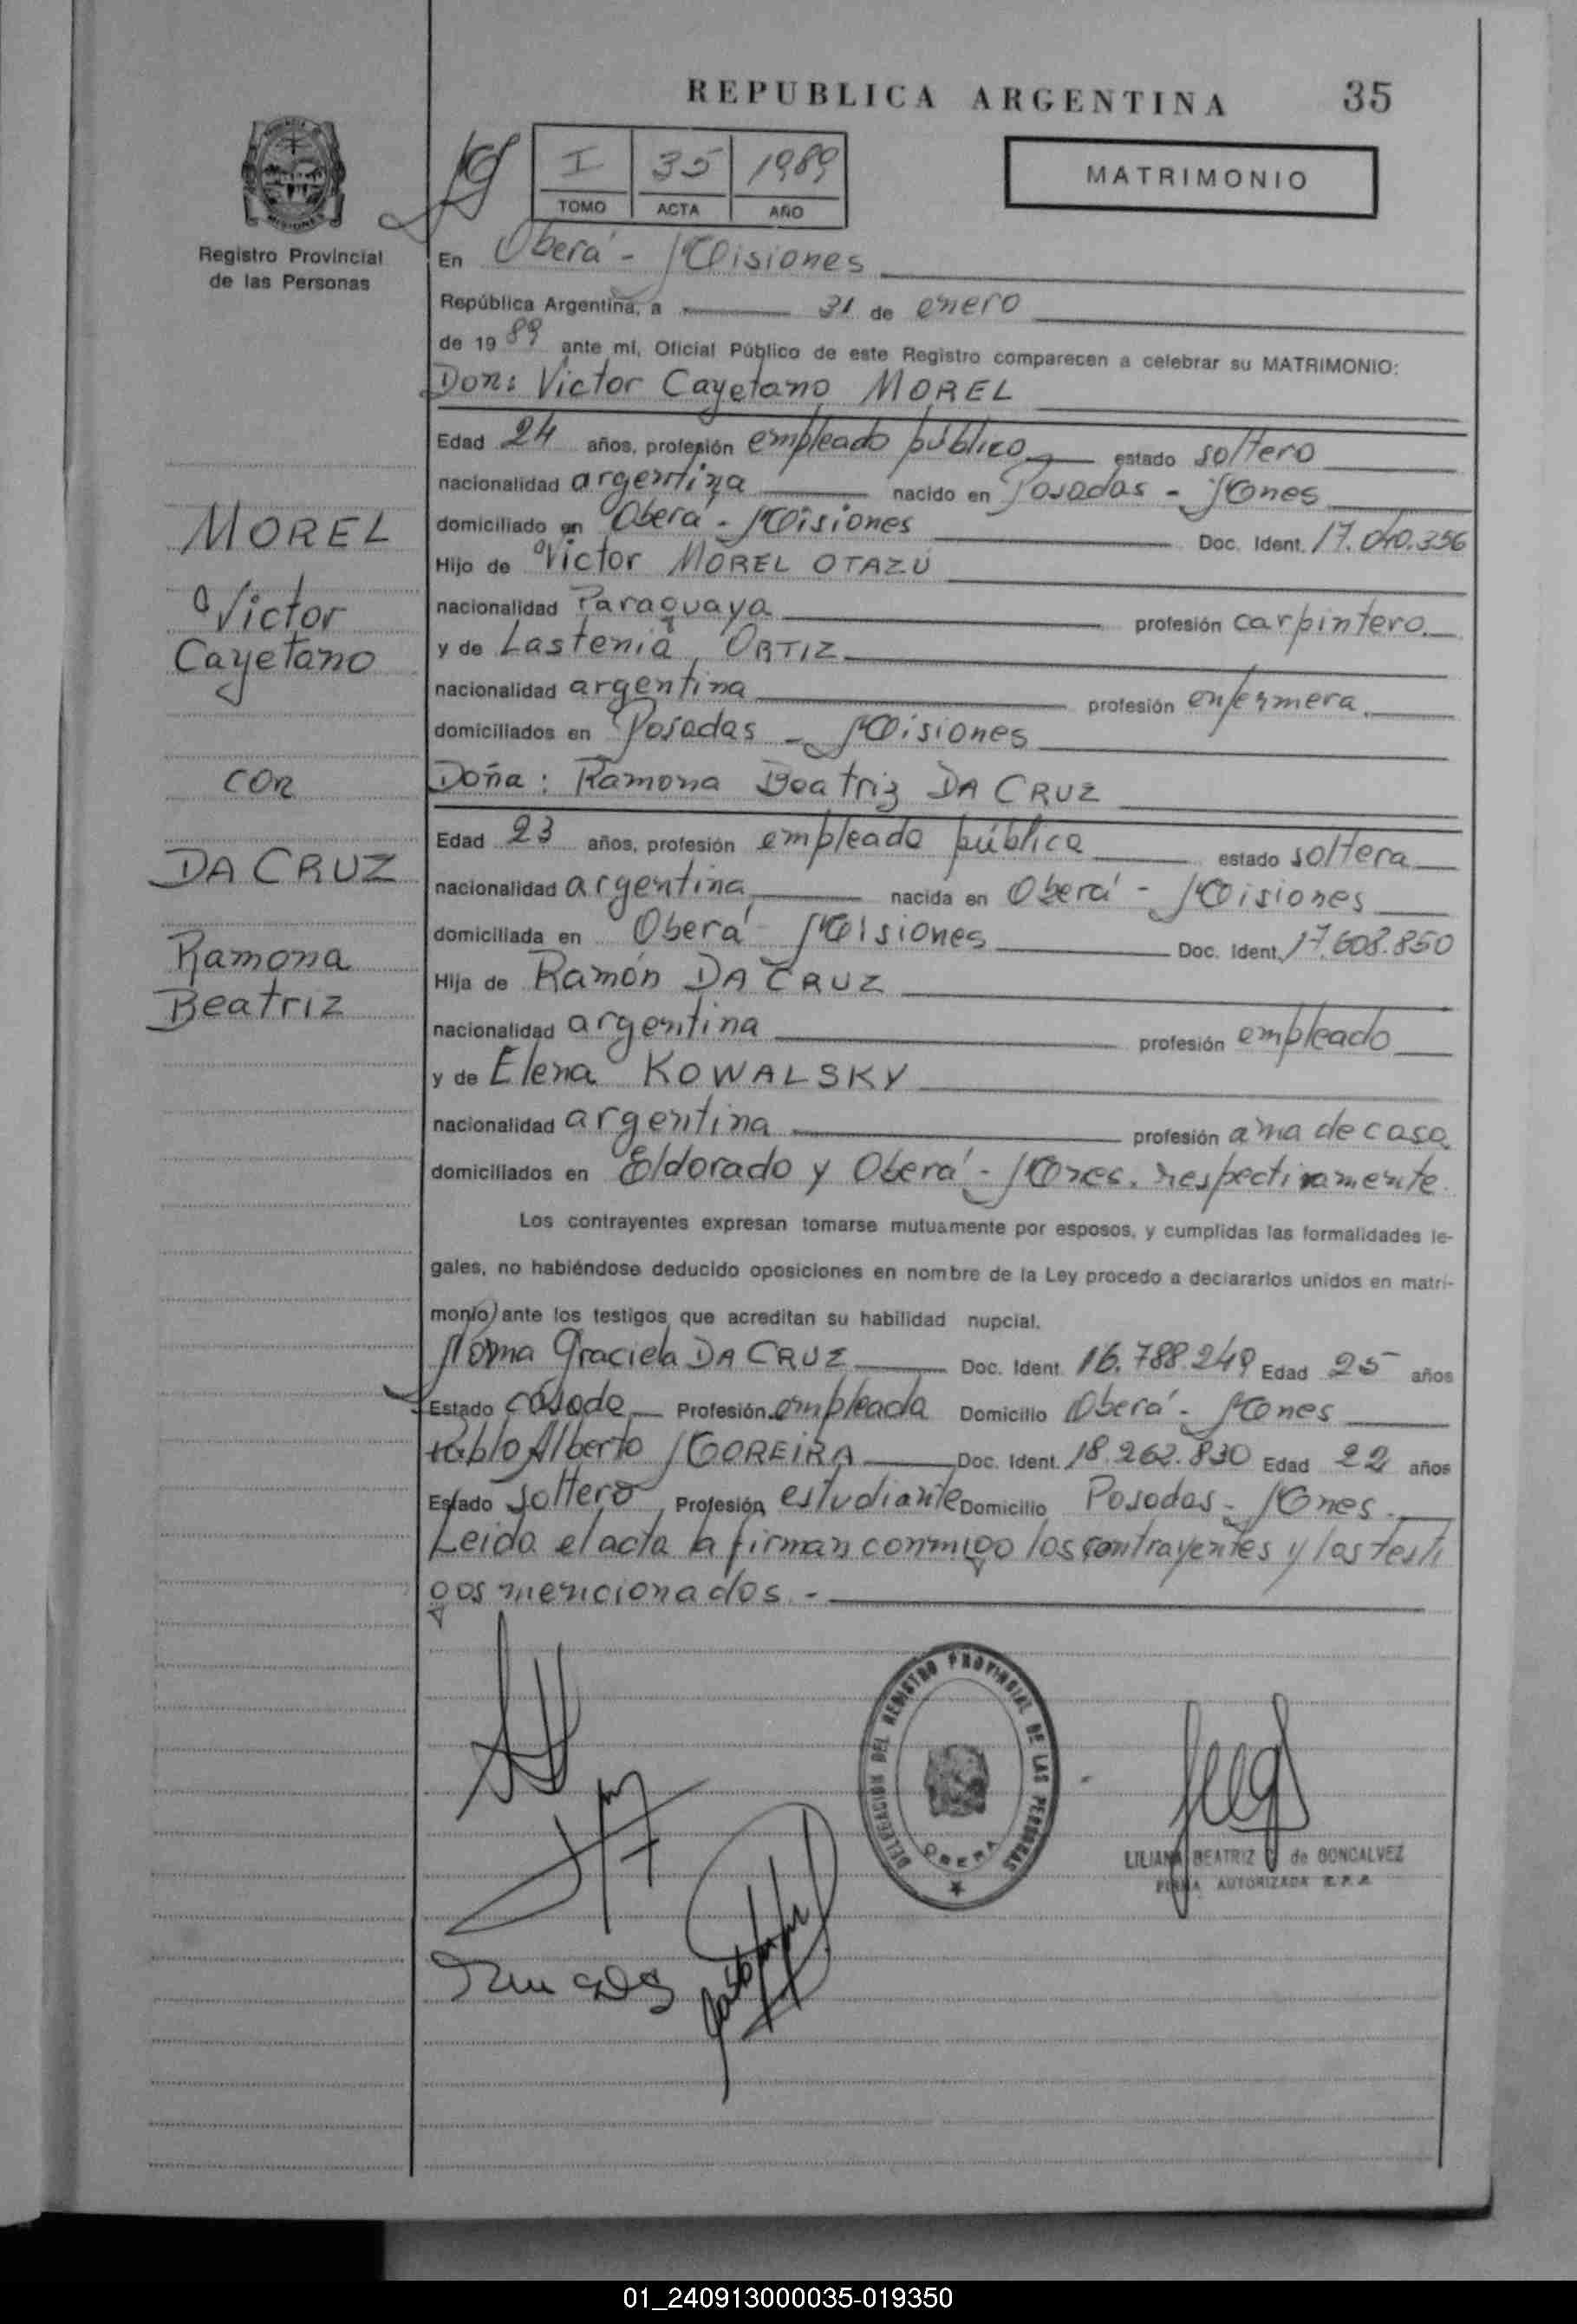 REPUBLICA ARGENTINA 35
I 35 1989
TOMO ACTA AÑO
MATRIMONIO
Registro Provincial
de las Personas
En Oberá - Misiones
República Argentina, a 31 de enero
de 1989 ante mí, Oficial Público de este Registro comparecen a celebrar su MATRIMONIO:
Don: Victor Cayetano MOREL
Edad 24 años, profesión empleado público estado soltero
nacionalidad argentina nacido en Posadas - Mones
domiciliado en Oberá - Misiones Doc. Ident. 17.040.356
Hijo de Victor MOREL OTAZÚ
nacionalidad Paraguaya profesión carpintero
y de Lastenia ORTIZ
nacionalidad argentina profesión enfermera
domiciliados en Posadas - Misiones
Doña: Ramona Beatriz DA CRUZ
Edad 23 años, profesión empleada pública estado soltera
nacionalidad argentina nacida en Oberá - Misiones
domiciliada en Oberá Misiones Doc. Ident. 17.608.850
Hija de Ramón DA CRUZ
nacionalidad argentina profesión empleado
y de Elena KOWALSKY
nacionalidad argentina profesión ama de casa
domiciliados en Eldorado y Oberá - Mones. respectivamente
Los contrayentes expresan tomarse mutuamente por esposos, y cumplidas las formalidades le-
gales, no habiéndose deducido oposiciones en nombre de la Ley procedo a declararlos unidos en matri-
monio ante los testigos que acreditan su habilidad nupcial.
Norma Graciela DA CRUZ Doc. Ident. 16.788.249 Edad 25 años
Estado casada Profesión empleada Domicilio Oberá - Mones
Pablo Alberto MOREIRA Doc. Ident. 18.262.830 Edad 22 años
Estado soltero Profesión estudiante Domicilio Posadas - Mones.
Leida el acta la firman conmigo los contrayentes y los testi
gos mencionados. -
MOREL
Victor
Cayetano
con
DA CRUZ
Ramona
Beatriz
DELEGACION DEL REGISTRO PROVINCIAL DE LAS PERSONAS
OBERA
LILIANA BEATRIZ de GONCALVEZ
FIRMA AUTORIZADA R.P.P.
01_240913000035-019350